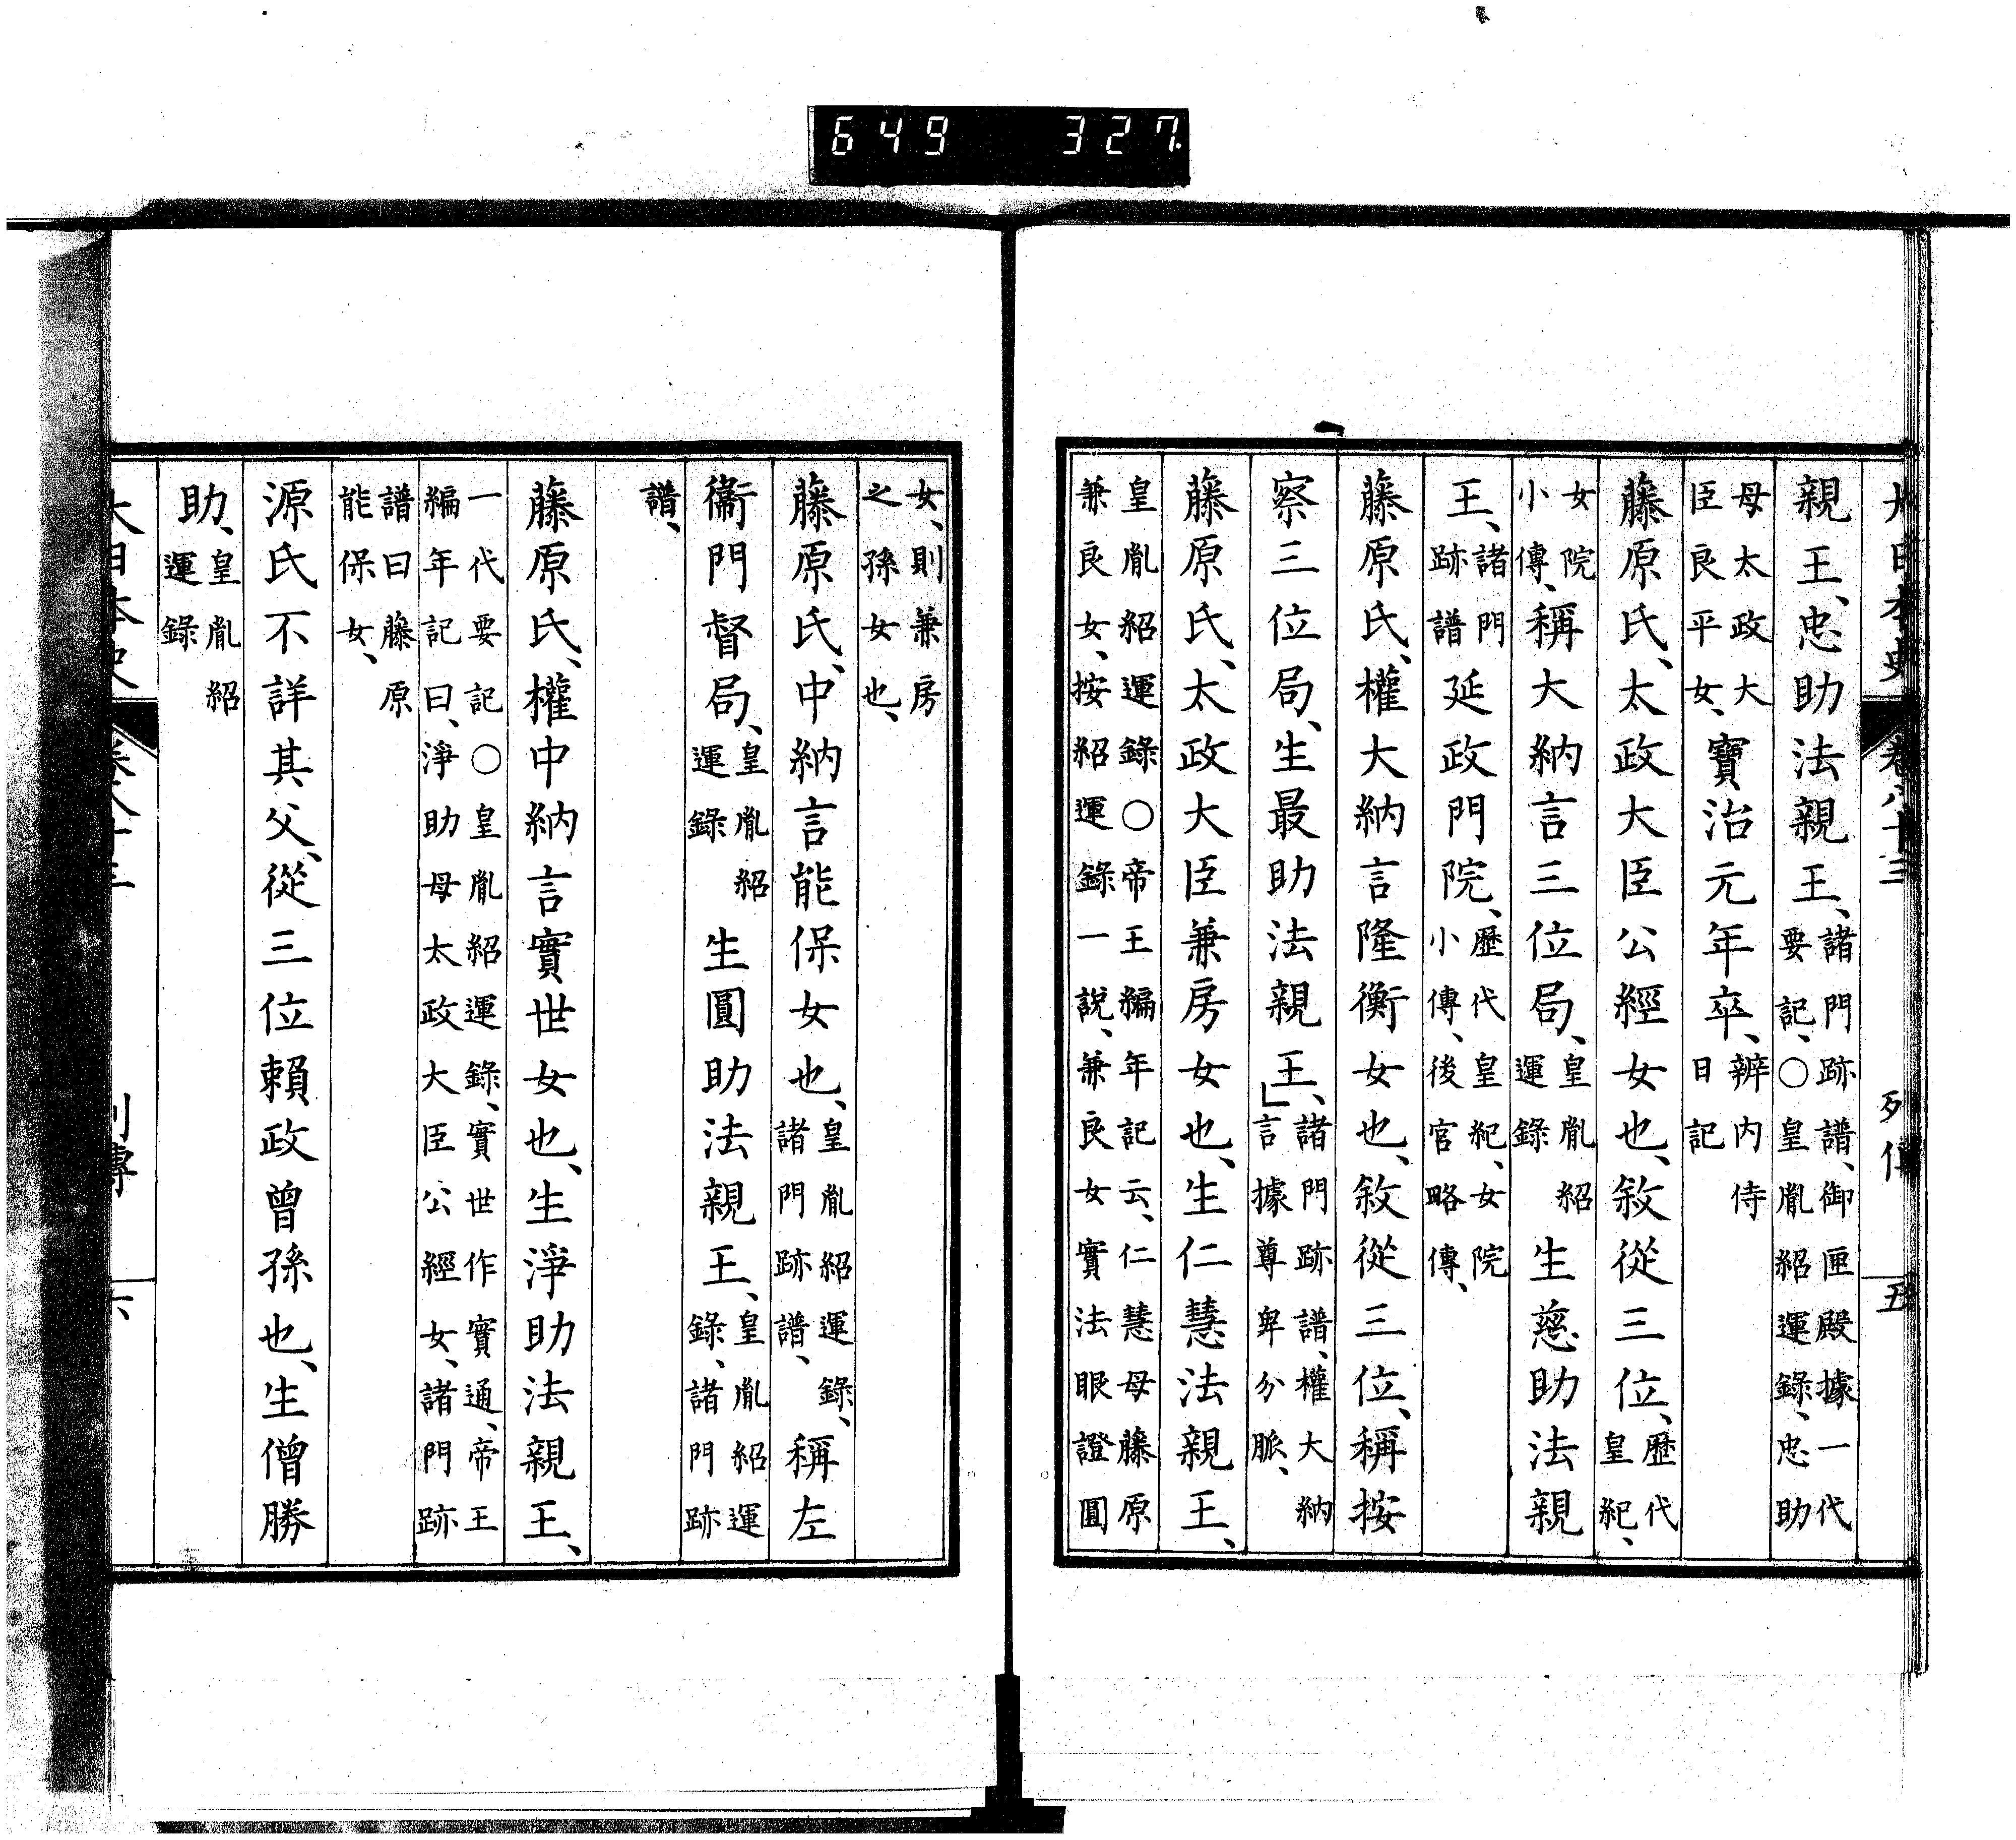 649 327
大日本史 卷八十三 列傳 五
親王、忠助法親王、諸門跡譜、御匣殿據一代要記、○皇胤紹運錄、忠助
母太政大臣良平女、寶治元年卒、辨内侍日記
藤原氏、太政大臣公經女也、敘從三位、歷代皇紀、
女院小傳、稱大納言三位局、皇胤紹運錄生慈助法親
王、諸門跡譜延政門院、歷代皇紀、女院小傳、後宮略傳、
藤原氏、權大納言隆衡女也、敘從三位、稱按
察三位局、生最助法親王、諸門跡譜、權大納言據尊卑分脈、
藤原氏、太政大臣兼房女也、生仁慧法親王、
皇胤紹運錄○帝王編年記云、仁慧母藤原兼良女、按紹運錄一說、兼良女實法眼證圓
女、則兼房之孫女也、
藤原氏、中納言能保女也、皇胤紹運錄、諸門跡譜、稱左
衞門督局、皇胤紹運錄生圓助法親王、皇胤紹運錄、諸門跡
譜、
藤原氏、權中納言實世女也、生淨助法親王、
一代要記○皇胤紹運錄、實世作實通、帝王編年記曰、淨助母太政大臣公經女、諸門跡
譜曰藤原能保女、
源氏不詳其父、從三位賴政曾孫也、生僧勝
助、皇胤紹運錄
大日本史 卷八十三 列傳 六